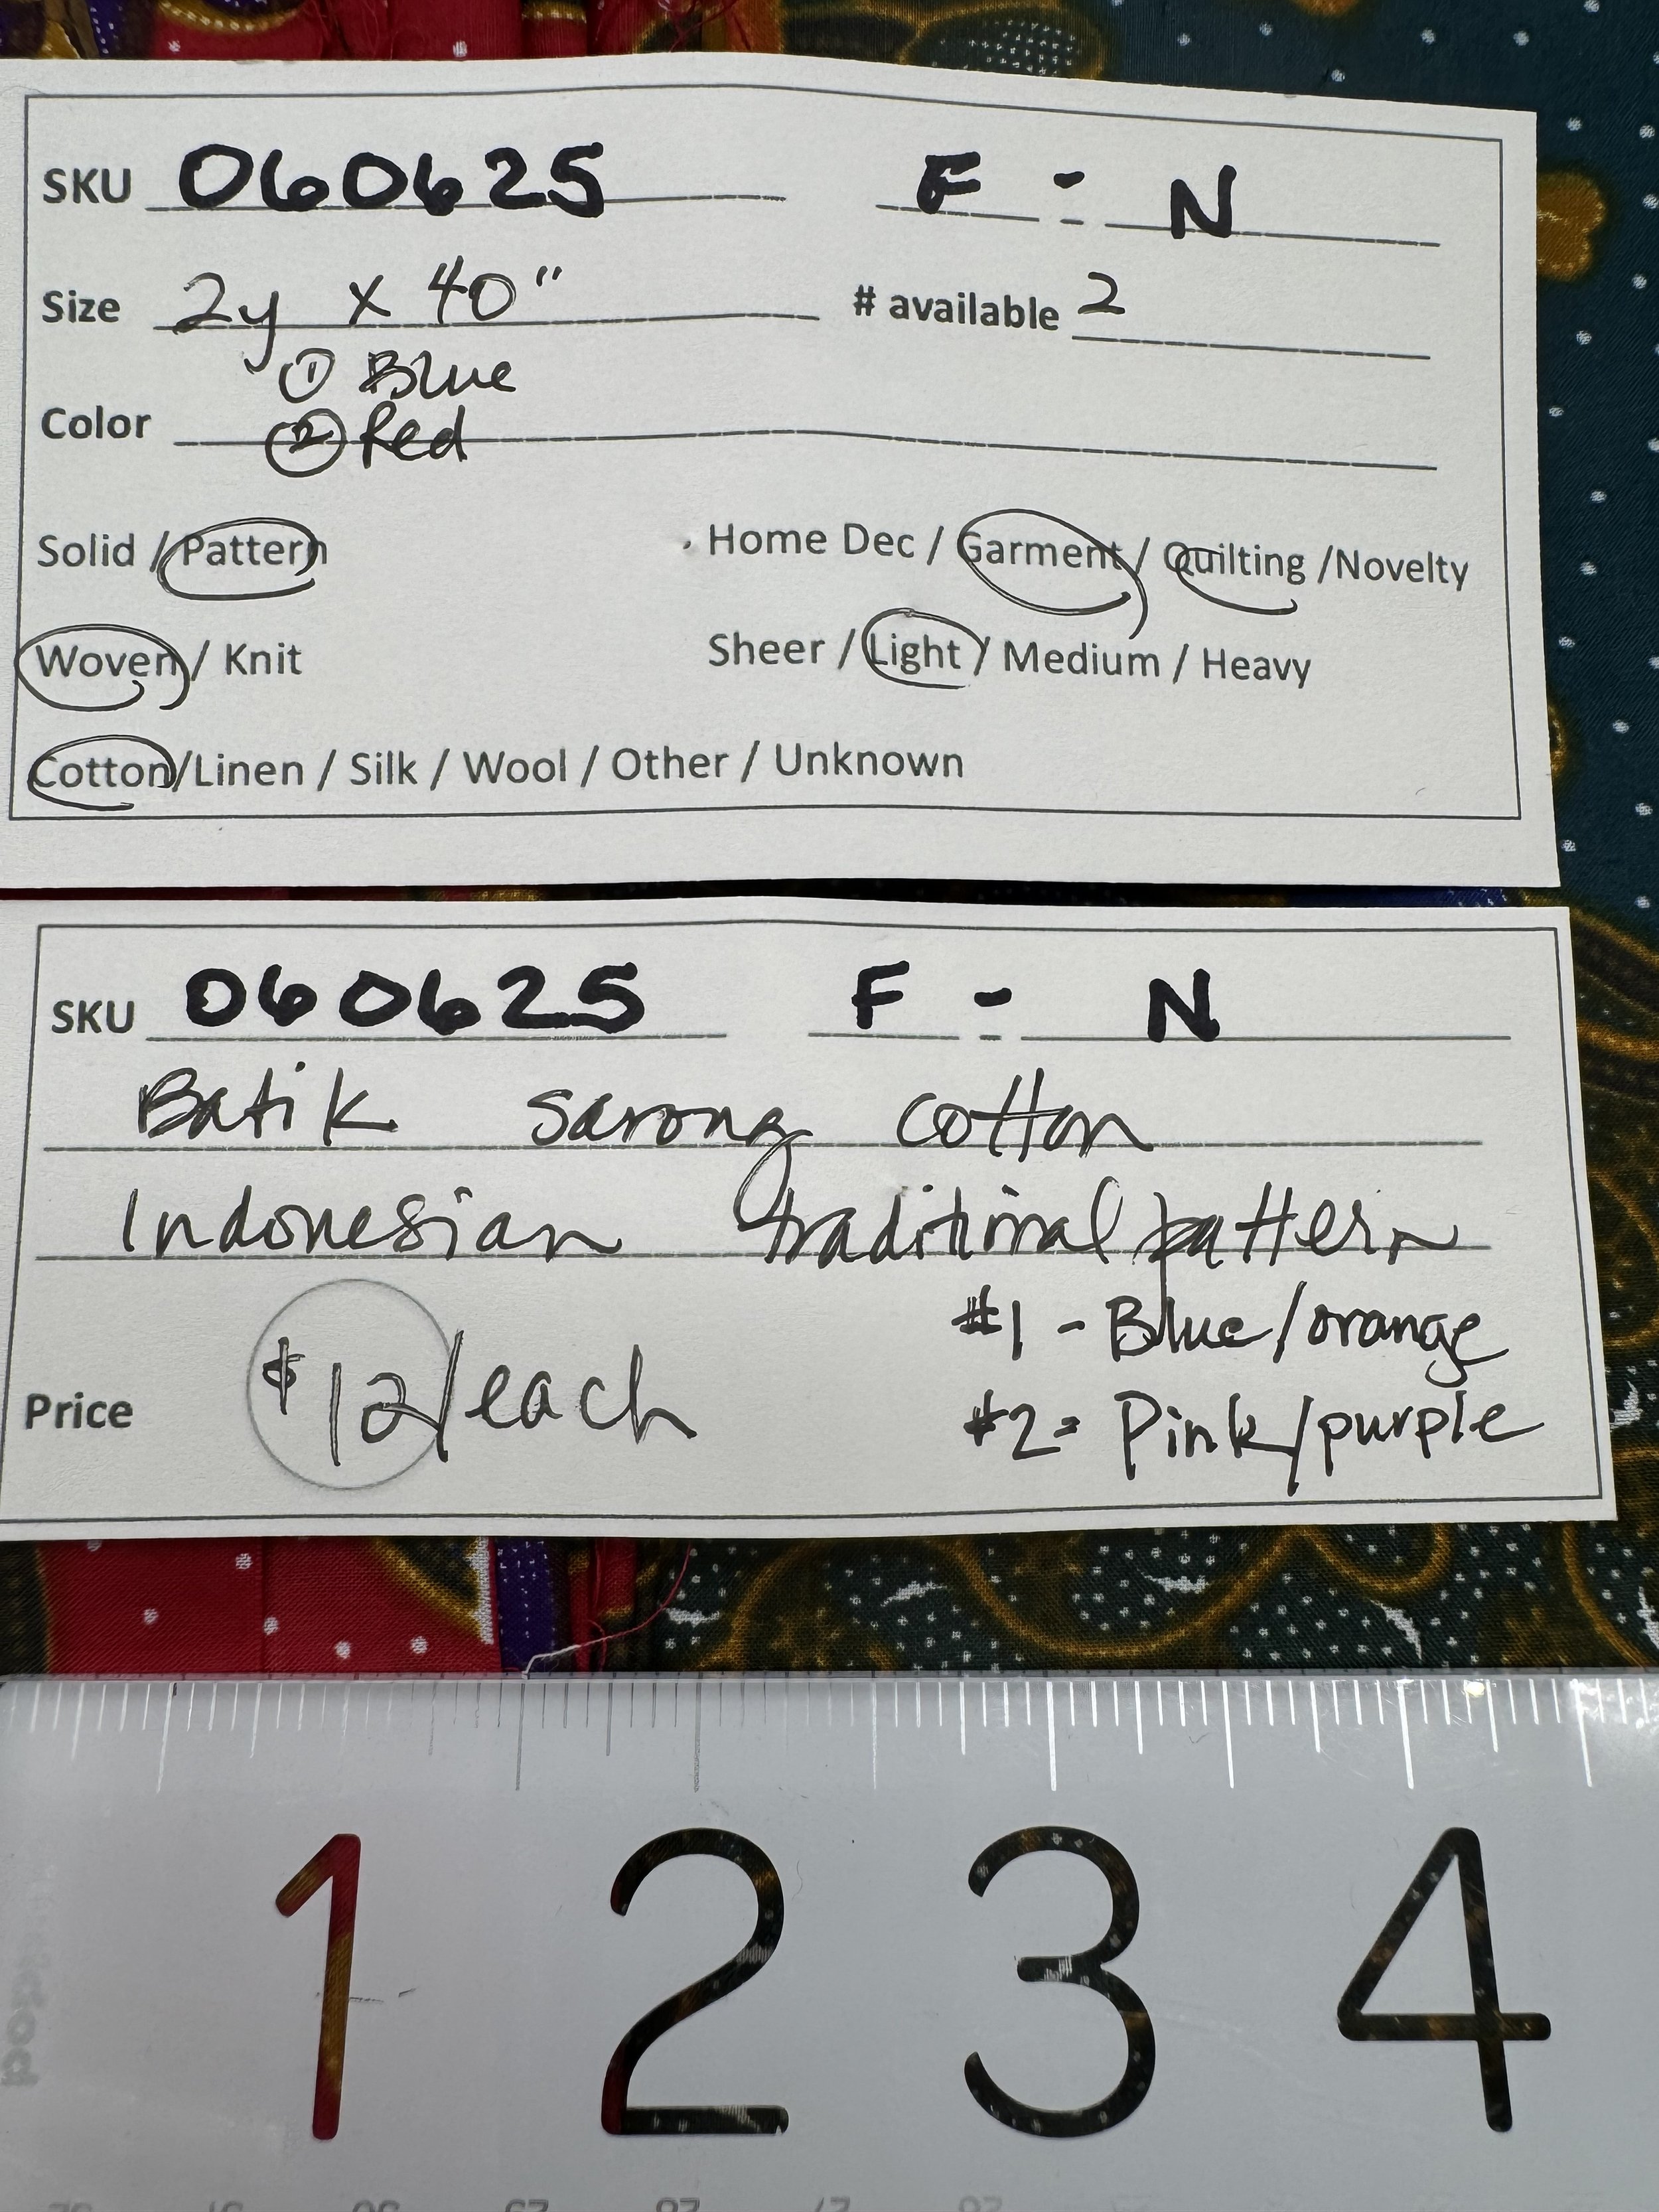 SKU 060625 F - N
Size 2y x 40" # available 2
① Blue
Color ② Red
Solid / Pattern Home Dec / Garment / Quilting /Novelty
Woven / Knit Sheer / Light / Medium / Heavy
Cotton/Linen / Silk / Wool / Other / Unknown
SKU 060625 F - N
Batik sarong cotton
Indonesian traditional pattern
#1 - Blue/orange
Price $12/each #2 = Pink/purple
1 2 3 4